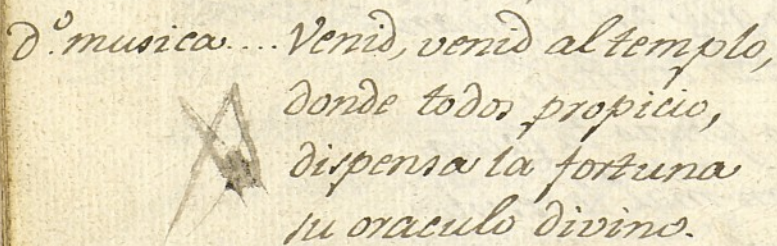 D.º musica.... Venid, venid al templo,
donde todos propicio,
dispensa la fortuna
su oraculo divino.